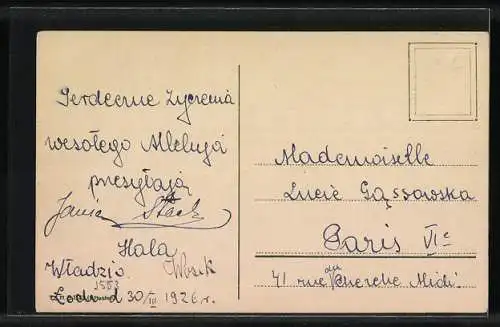 Serdeczne życzenia
wesołego Alleluja
przesyłają
Janie Stach
Hala
Władzio Włosek
1583
Łodz d 30/III 1926 r.
Mademoiselle
Lucie Gąssowska
Paris VIe
41 rue du Cherche Midi